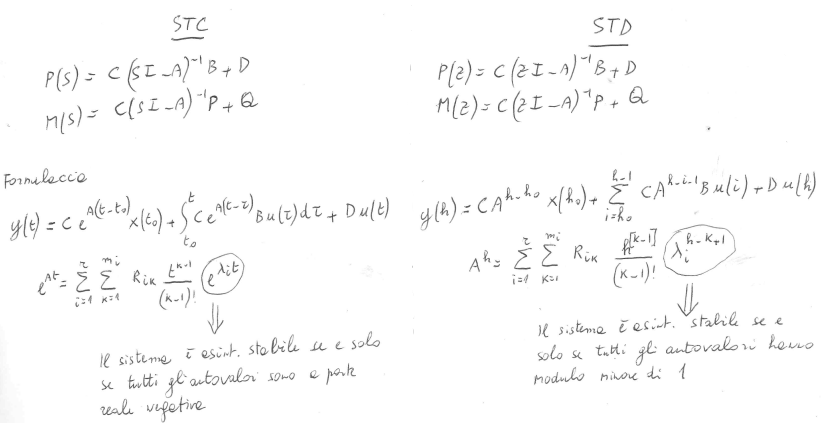 STC
P(s) = C (sI-A)⁻¹B + D
M(s) = C(sI-A)⁻¹P + Q
Formulaccia
y(t) = C e^{A(t-t₀)} x(t₀) + ∫_{t₀}^{t} C e^{A(t-τ)} B u(τ) dτ + D u(t)
e^{At} = Σ_{i=1}^{r} Σ_{k=1}^{mᵢ} R_{ik} t^{k-1}/(k-1)! e^{λᵢt}
⇓
Il sistema è asint. stabile se e solo
se tutti gli autovalori sono a parte
reale negativa
STD
P(z) = C (zI-A)⁻¹B + D
M(z) = C (zI-A)⁻¹P + Q
y(h) = C A^{h-h₀} x(h₀) + Σ_{i=h₀}^{h-1} C A^{h-i-1} B u(i) + D u(h)
A^h = Σ_{i=1}^{r} Σ_{k=1}^{mᵢ} R_{ik} h^{[k-1]}/(k-1)! λᵢ^{h-k+1}
⇓
Il sistema è asint. stabile se e
solo se tutti gli autovalori hanno
modulo minore di 1